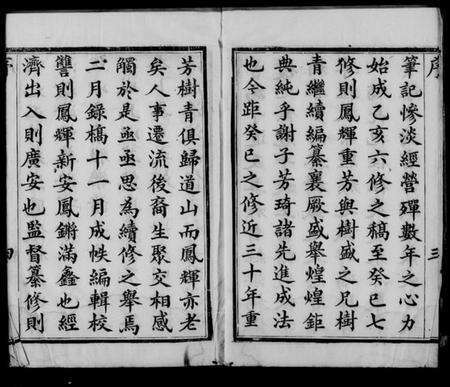 序
三
筆記慘淡經營殫數年之心力
始成乙亥六修之稿至癸巳七
修則鳳輝重芳與樹盛之兄樹
青繼續編纂襄厥盛舉煌煌鉅
典純乎謝子芳琦諸先進成法
也今距癸巳之修近三十年重
芳樹青俱歸道山而鳳輝亦老
矣人事遷流後裔生聚交相感
觸於是亟亟思為續修之舉焉
二月錄稿十一月成帙編輯校
讐則鳳輝新安鳳鏘滿鑫也經
濟出入則廣安也監督纂修則
序
四